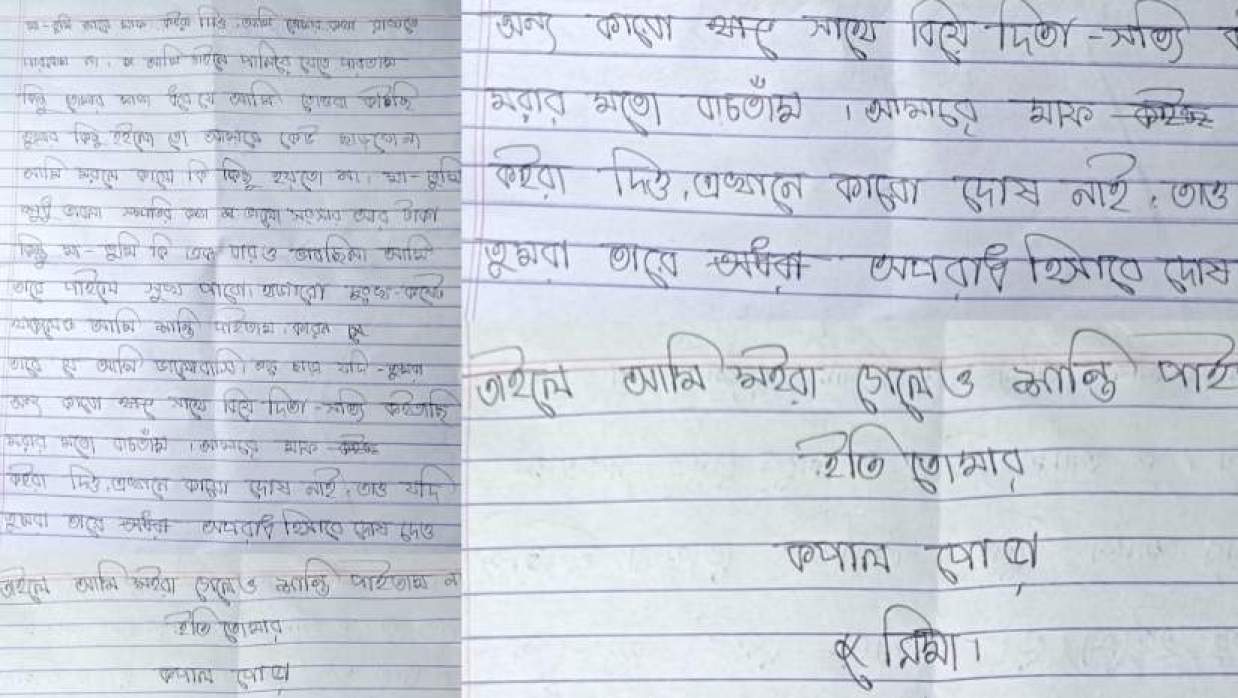 মা-তুমি আমারে মাফ কইরা দিও। আমি তোমার কথা রাখতে
পারলাম না। আমি চাইলে পালিয়ে যেতে পারতাম
কিন্তু তোমার মাথা ছুঁয়ে যে আমি
কিছু হইলে তো আমাকে কেউ
আমি মরলে কারো কি কিছু হইতো না। মা-তুমি
শুধু ভাবলা সম্পত্তির কথা ভাবলা সংসার আর টাকা
কিন্তু মা-তুমি কি এক বারও ভাবছিলা আমি
তারে পাইলে সুখ পাবো। হাজারো দুঃখ-কষ্টে
থাকলেও আমি শান্তি পাইতাম। কারন
তারে যে আমি ভালোবাসি। যদি-তুমরা
অন্য কারো সাথে বিয়ে দিতা-সত্যি কইতাছি
মরার মতো বাচতাঁম। আমারে মাফ
কইরা দিও, এখানে কারো দোষ নাই, তাও যদি
তুমরা তারে অপরাধি হিসাবে দোষ দেও
তাইলে আমি মইরা গেলেও শান্তি পাইতাম ন
ইতি তোমার
কপাল পোড়া
অন্য কারো সাথে বিয়ে দিতা-সত্যি ক
মরার মতো বাচতাঁম। আমারে মাফ
কইরা দিও, এখানে কারো দোষ নাই, তাও
তুমরা তারে অপরাধি হিসাবে দোষ
তাইলে আমি মইরা গেলেও শান্তি পাই
ইতি তোমার
কপাল পোড়া